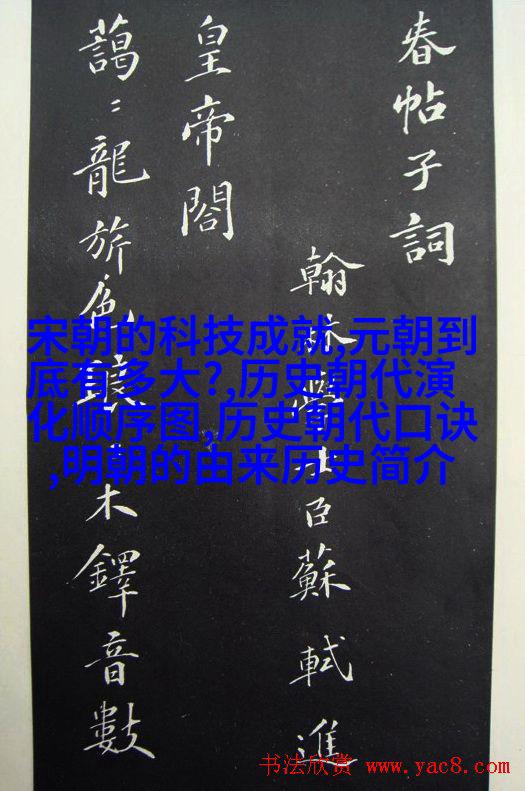 春帖子詞
翰林學士臣蘇軾進
皇帝閣
藹〻龍旂色木鐸音數
宋朝的科技成就,元朝到
底有多大?,历史朝代演
化顺序图,历史朝代口诀
,明朝的由来历史简介
书法欣赏 www.yac8.com